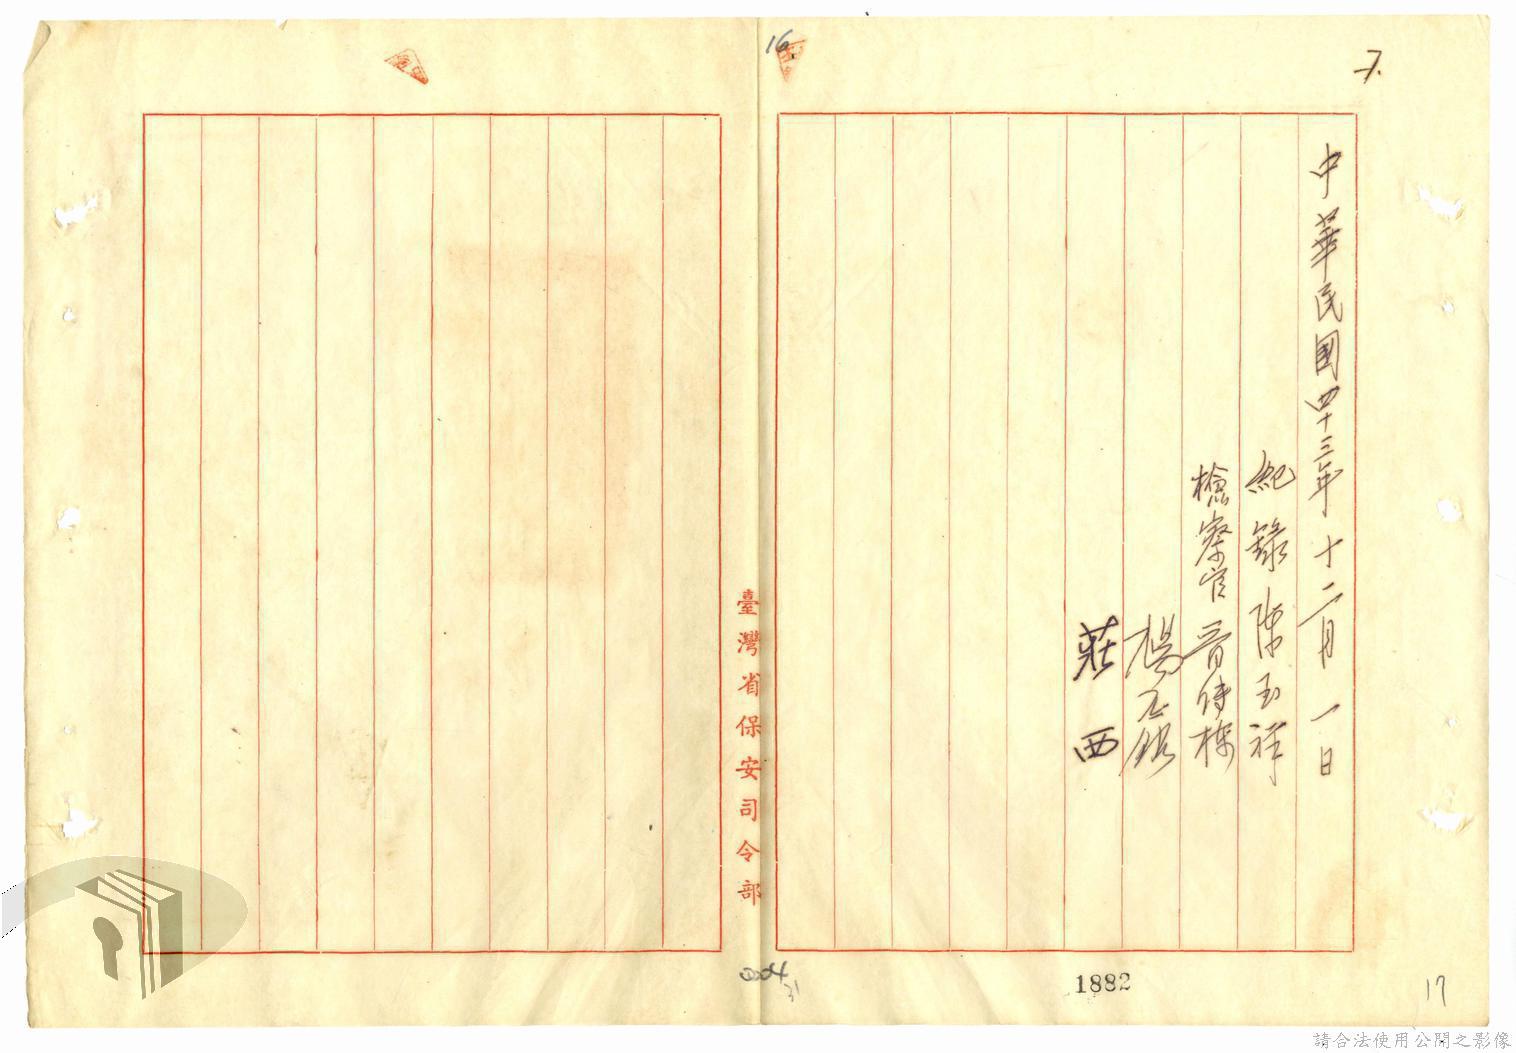 7.
16
中華民國四十三年十二月一日
紀錄陳玉祥
檢察官
莊西
臺灣省保安司令部
1882
17
請合法使用公開之影像